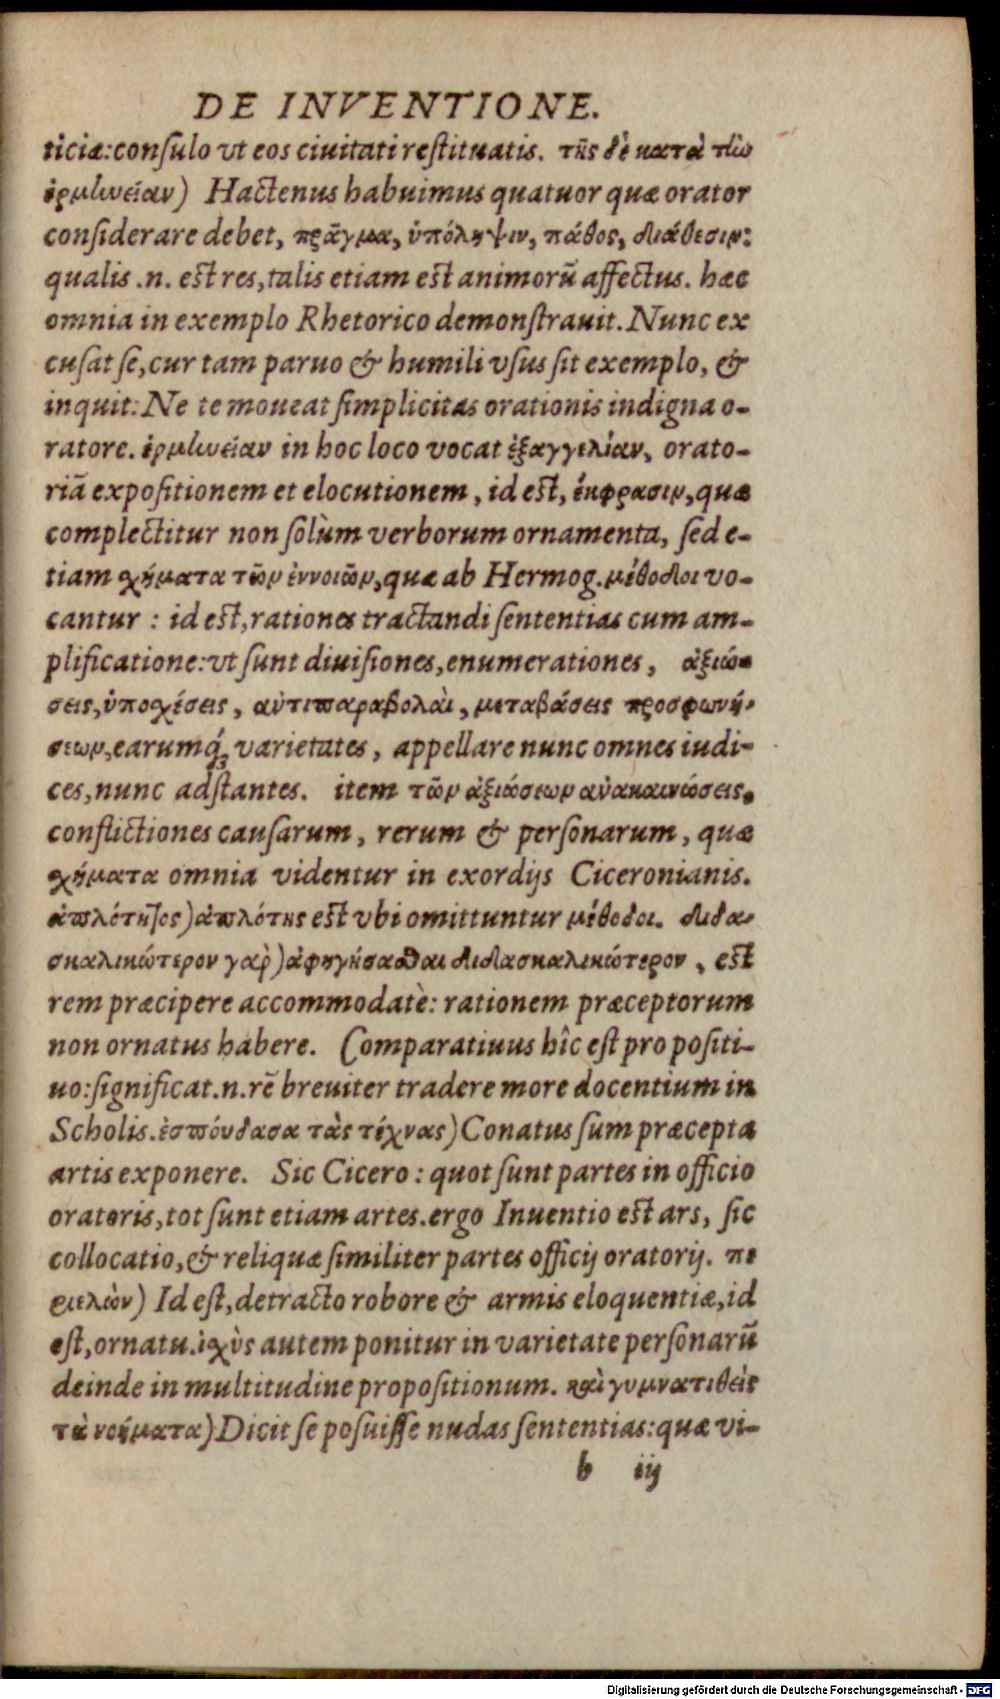 DE INVENTIONE.
ticiæ:consulo vt eos ciuitati restituatis. τῆς δὲ κατὰ τὴν
ἑρμηνείαν) Hactenus habuimus quatuor quæ orator
considerare debet, πρᾶγμα, ὑπόληψιν, πάθος, διάθεσιν:
qualis .n. est res,talis etiam est animorũ affectus. hæc
omnia in exemplo Rhetorico demonstrauit. Nunc ex
cusat se,cur tam paruo & humili vsus sit exemplo, &
inquit: Ne te moueat simplicitas orationis indigna o-
ratore. ἑρμηνείαν in hoc loco vocat ἐξαγγελίαν, orato-
riã expositionem et elocutionem, id est, ἔκφρασιν,quæ
complectitur non solùm verborum ornamenta, sed e-
tiam σχήματα τῶν ἐννοιῶν,quæ ab Hermog.μέθοδοι vo-
cantur : id est,rationes tractandi sententias cum am-
plificatione:vt sunt diuisiones,enumerationes, ἀξιώ-
σεις,ὑποσχέσεις, αὐτιπαραβολαὶ, μεταβάσεις προσφωνή-
σεων,earumq́ue varietates, appellare nunc omnes iudi-
ces,nunc adstantes. item τῶν ἀξιώσεων ἀνακαινώσεις,
conflictiones causarum, rerum & personarum, quæ
σχήματα omnia videntur in exordijs Ciceronianis.
ἁπλότητος)ἁπλότης est vbi omittuntur μέθοδοι. διδα-
σκαλικώτερον γαρ̀)ἀφηγήσασθαι διδασκαλικώτερον, est
rem præcipere accommodatè: rationem præceptorum
non ornatus habere. Comparatiuus hîc est pro positi-
uo:significat.n.rẽ breuiter tradere more docentium in
Scholis.ἐσπούδασα τὰς τέχνας)Conatus sum præcepta
artis exponere. Sic Cicero : quot sunt partes in officio
oratoris,tot sunt etiam artes.ergo Inuentio est ars, sic
collocatio,& reliquæ similiter partes officij oratorij. πε
ριελὼν) Id est,detracto robore & armis eloquentiæ,id
est,ornatu.ἰσχὺς autem ponitur in varietate personarũ
deinde in multitudine propositionum. καὶ γυμνὰ τιθεὶς
τὰ νοήματα)Dicit se posuisse nudas sententias:quæ vi-
b iij
Digitalisierung gefördert durch die Deutsche Forschungsgemeinschaft - DFG